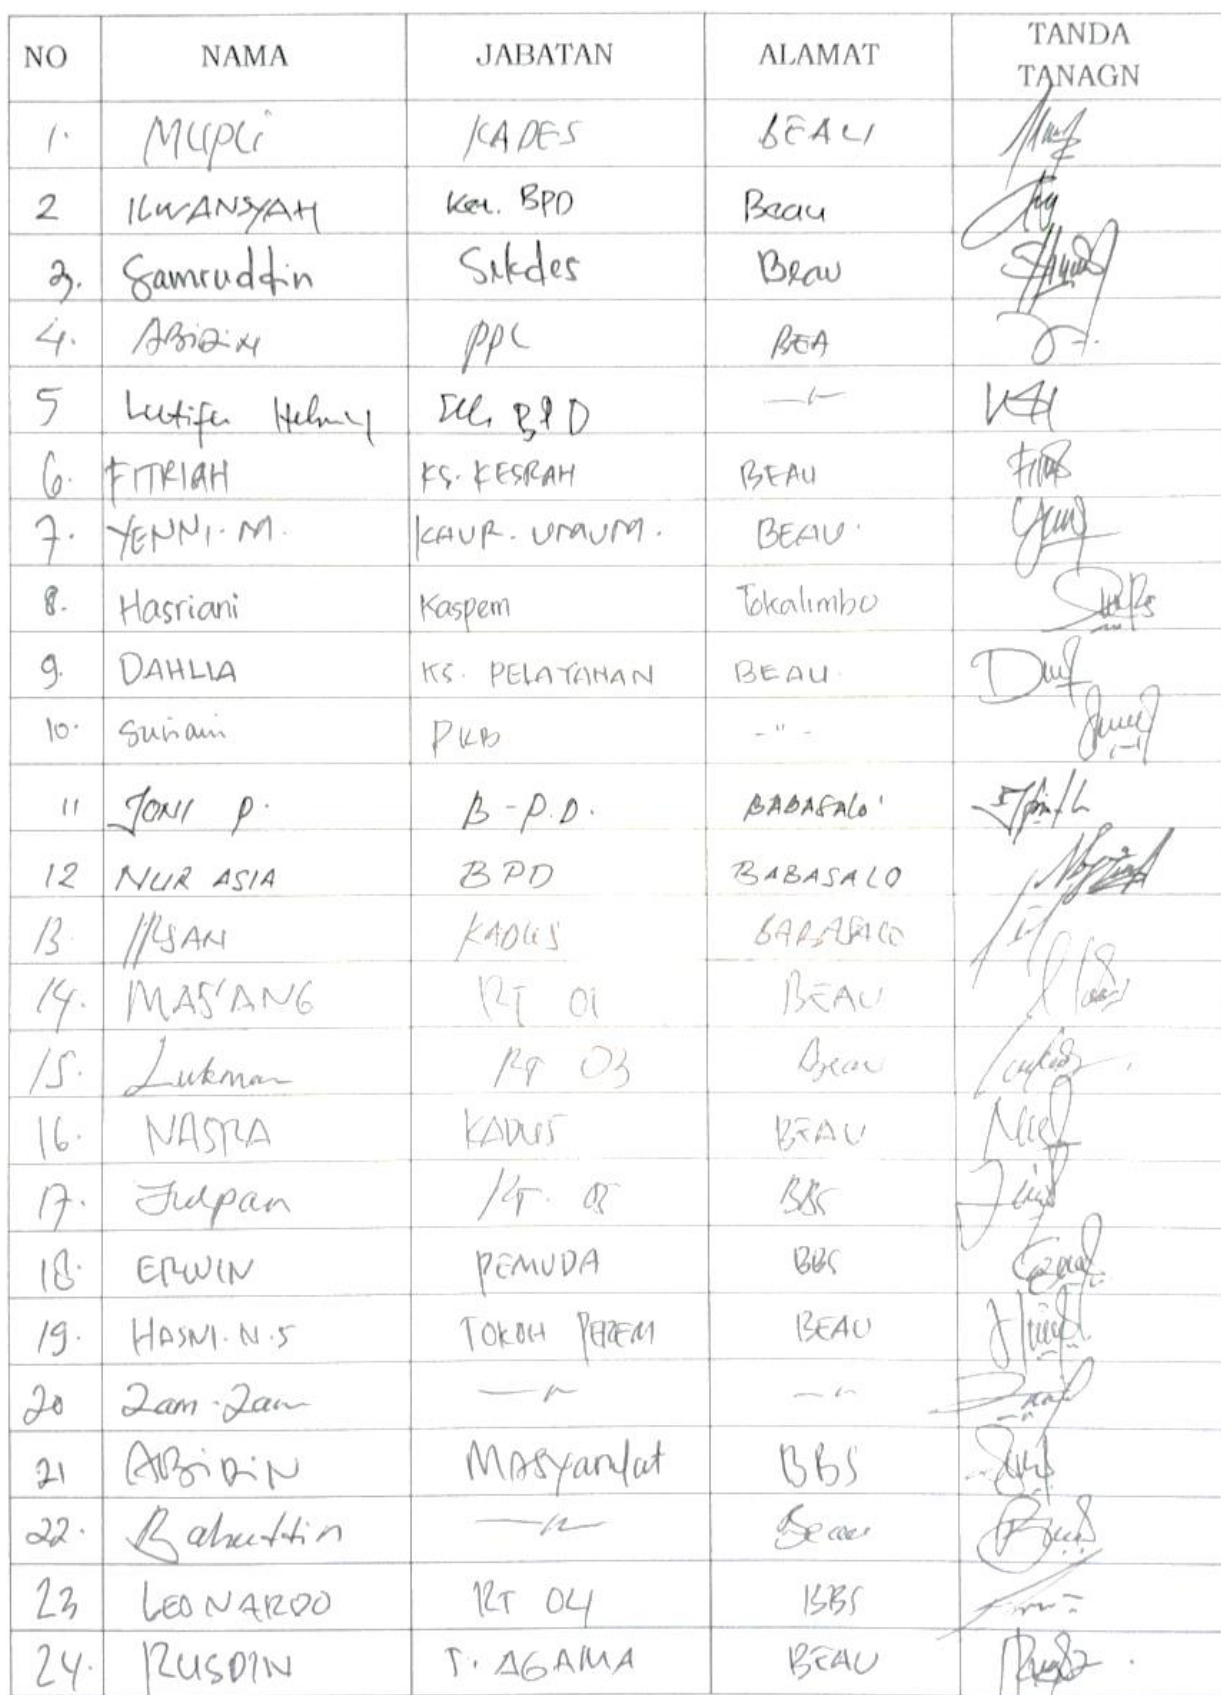 NO NAMA JABATAN ALAMAT TANDA TANAGN
1. MUPLI KADES BEAU
2 ILWANSYAH Ket. BPD Beau
3. Samruddin Sekdes Beau
4. ABIDIN PPL BEA
5 Lutifa Helmy Sek BPD —〃—
6. FITRIAH KS. KESRAH BEAU
7. YENNI. M. KAUR. UMUM. BEAU.
8. Hasriani Kaspem Tokalimbo
9. DAHLIA KS. PELAYANAN BEAU.
10. Suriani PKB - " -
11 JONI P. B - P.D. BABASALO'
12 NUR ASIA BPD BABASALO
13. IRSAN KADUS BABASALO
14. MAS'ANG RT 01 BEAU
15. Lukman RT 03 Beau
16. NASRA KADUS BEAU
17. Julpan RT. BBS
18. ERWIN PEMUDA BBS
19. HASNI. N.S TOKOH PEREM BEAU
20 Zam-Zam —〃— —〃
21 ABIDIN MASYARAKAT BBS
22. Bahuddin —〃— Beau
23 LEONARDO RT 04 BBS
24. RUSDIN T. AGAMA BEAU